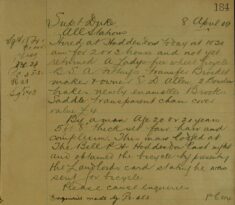 184
Supt Dyke 8 April 09
All Stations
Hired at Hoddesdon Today at 10.30
am for 2 or 3 hours and not yet
returned A Lady's free wheel cycle
B.S.A. fittings Transfer Braided
maker's name S. D. Allen, 2 brakes
newly enameled Brook
Saddle Transparent chain cover
value £4
By a man Age 20 or 30 years
5ft 8 thick set fair hair and
complexion. This man lodged at
The Bell P.H. Hoddesdon last night
and obtained the bicycle by presenting
the Landlords card stating he was
sent for bicycle
Please cause enquiries
Enquiries made by